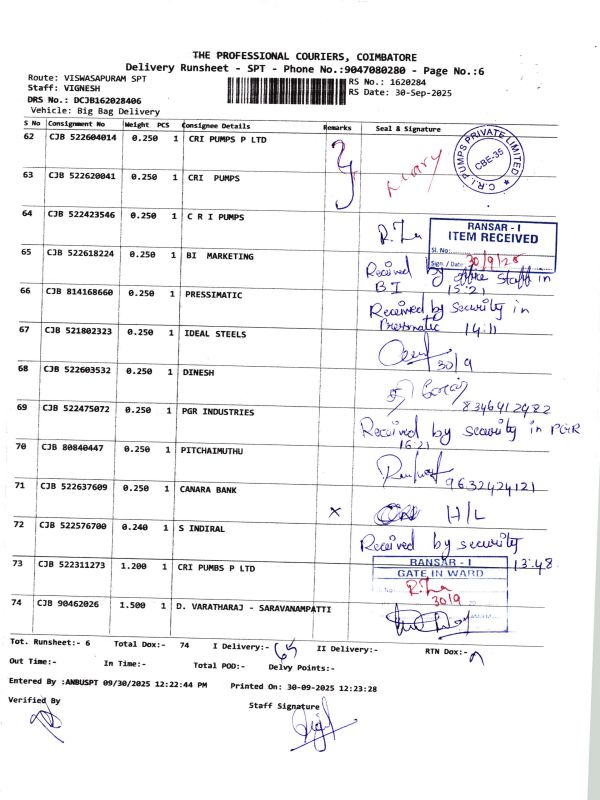 THE PROFESSIONAL COURIERS, COIMBATORE
Delivery Runsheet - SPT - Phone No.:9047080280 - Page No.:6
Route: VISWASAPURAM SPT RS No.: 1620284
Staff: VIGNESH RS Date: 30-Sep-2025
DRS No.: DCJB162028406
Vehicle: Big Bag Delivery
S No Consignment No Weight PCS Consignee Details Remarks Seal & Signature
62 CJB 522604014 0.250 1 CRI PUMPS P LTD
C.R.I. PUMPS PRIVATE LIMITED
CBE-35
63 CJB 522620041 0.250 1 CRI PUMPS
64 CJB 522423546 0.250 1 C R I PUMPS
RANSAR - I
ITEM RECEIVED
Sl. No:
Sign. / Date: 30/9/25
65 CJB 522618224 0.250 1 BI MARKETING
Received by office staff in
BI 15:21
66 CJB 814168660 0.250 1 PRESSIMATIC
Received by security in
Pressmatic 14:11
67 CJB 521802323 0.250 1 IDEAL STEELS
30/9
68 CJB 522603532 0.250 1 DINESH
8346412982
69 CJB 522475072 0.250 1 PGR INDUSTRIES
Received by security in PGR
16:21
70 CJB 80840447 0.250 1 PITCHAIMUTHU
9632424121
71 CJB 522637609 0.250 1 CANARA BANK
x H/L
72 CJB 522576700 0.240 1 S INDIRAL
Received by security
13:48
73 CJB 522311273 1.200 1 CRI PUMBS P LTD
RANSAR - I
GATE IN WARD
30/9
74 CJB 90462026 1.500 1 D. VARATHARAJ - SARAVANAMPATTI
Tot. Runsheet:- 6 Total Dox:- 74 I Delivery:- 65 II Delivery:- RTN Dox:-
Out Time:- In Time:- Total POD:- Delvy Points:-
Entered By :ANBUSPT 09/30/2025 12:22:44 PM Printed On: 30-09-2025 12:23:28
Verified By Staff Signature